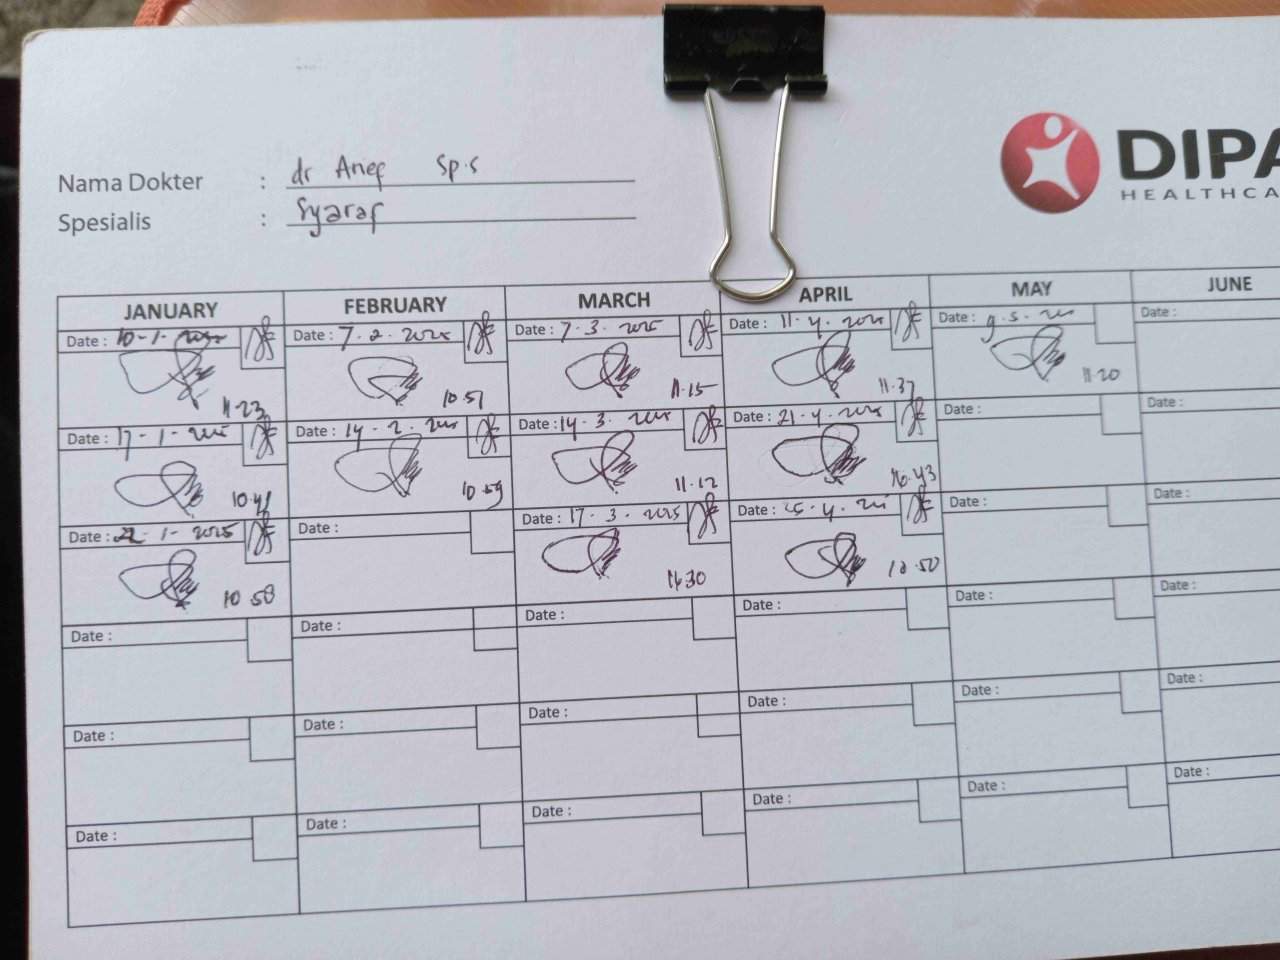 Nama Dokter : dr Arief Sp.S
Spesialis : Syaraf
DIPA
HEALTHCA
JANUARY FEBRUARY MARCH APRIL MAY JUNE
Date : 10-1- Date : 7.2.2025 Date : 7.3.2025 Date : 11.4.2025 Date : 9.5. Date :
11.23 10.51 11.15 11.37 11.20
Date : 17-1- Date : 14-2. Date : 14-3. Date : 21-4.2025 Date : Date :
10.41 10.59 11.12
Date : 22-1-2025 Date : Date : 17-3.2025 Date : Date : Date :
10.58
Date : Date : Date : Date : Date : Date :
Date : Date : Date : Date : Date : Date :
Date : Date : Date : Date : Date : Date :